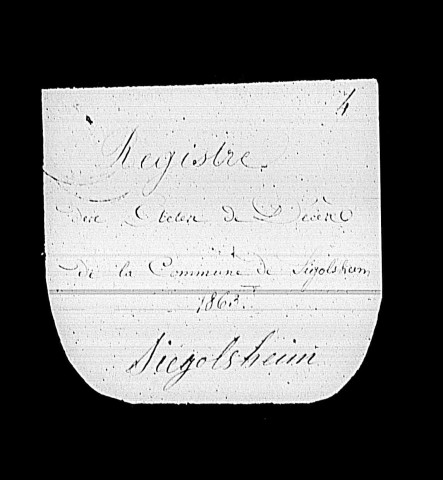 4
Registre
des Actes de Décès
de la Commune de Sigolsheim
1863.
Siegolsheim